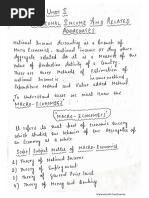 Unit 5
National Income And Related
Aggregates
National Income Accounting is a branch of
Macro Economics, National income or any other
Aggregate related to it is a Measure of the
value of production Activity of a Country.
There are three Methods of Estimation of
national income
Expenditure Method and Value added Method.
To understand these we must know the
MACRO-ECONOMICS'
MACRO-ECONOMICS'
It refers to that part of economic theory
which studies the behavior of the Aggregates of
an Economy as a whole.
Scope/Subject Matter of Macro-Economics
1) Theory of National Income
2) Theory of Employment
3) Theory of General Price level
4) Theory of Money and Banking